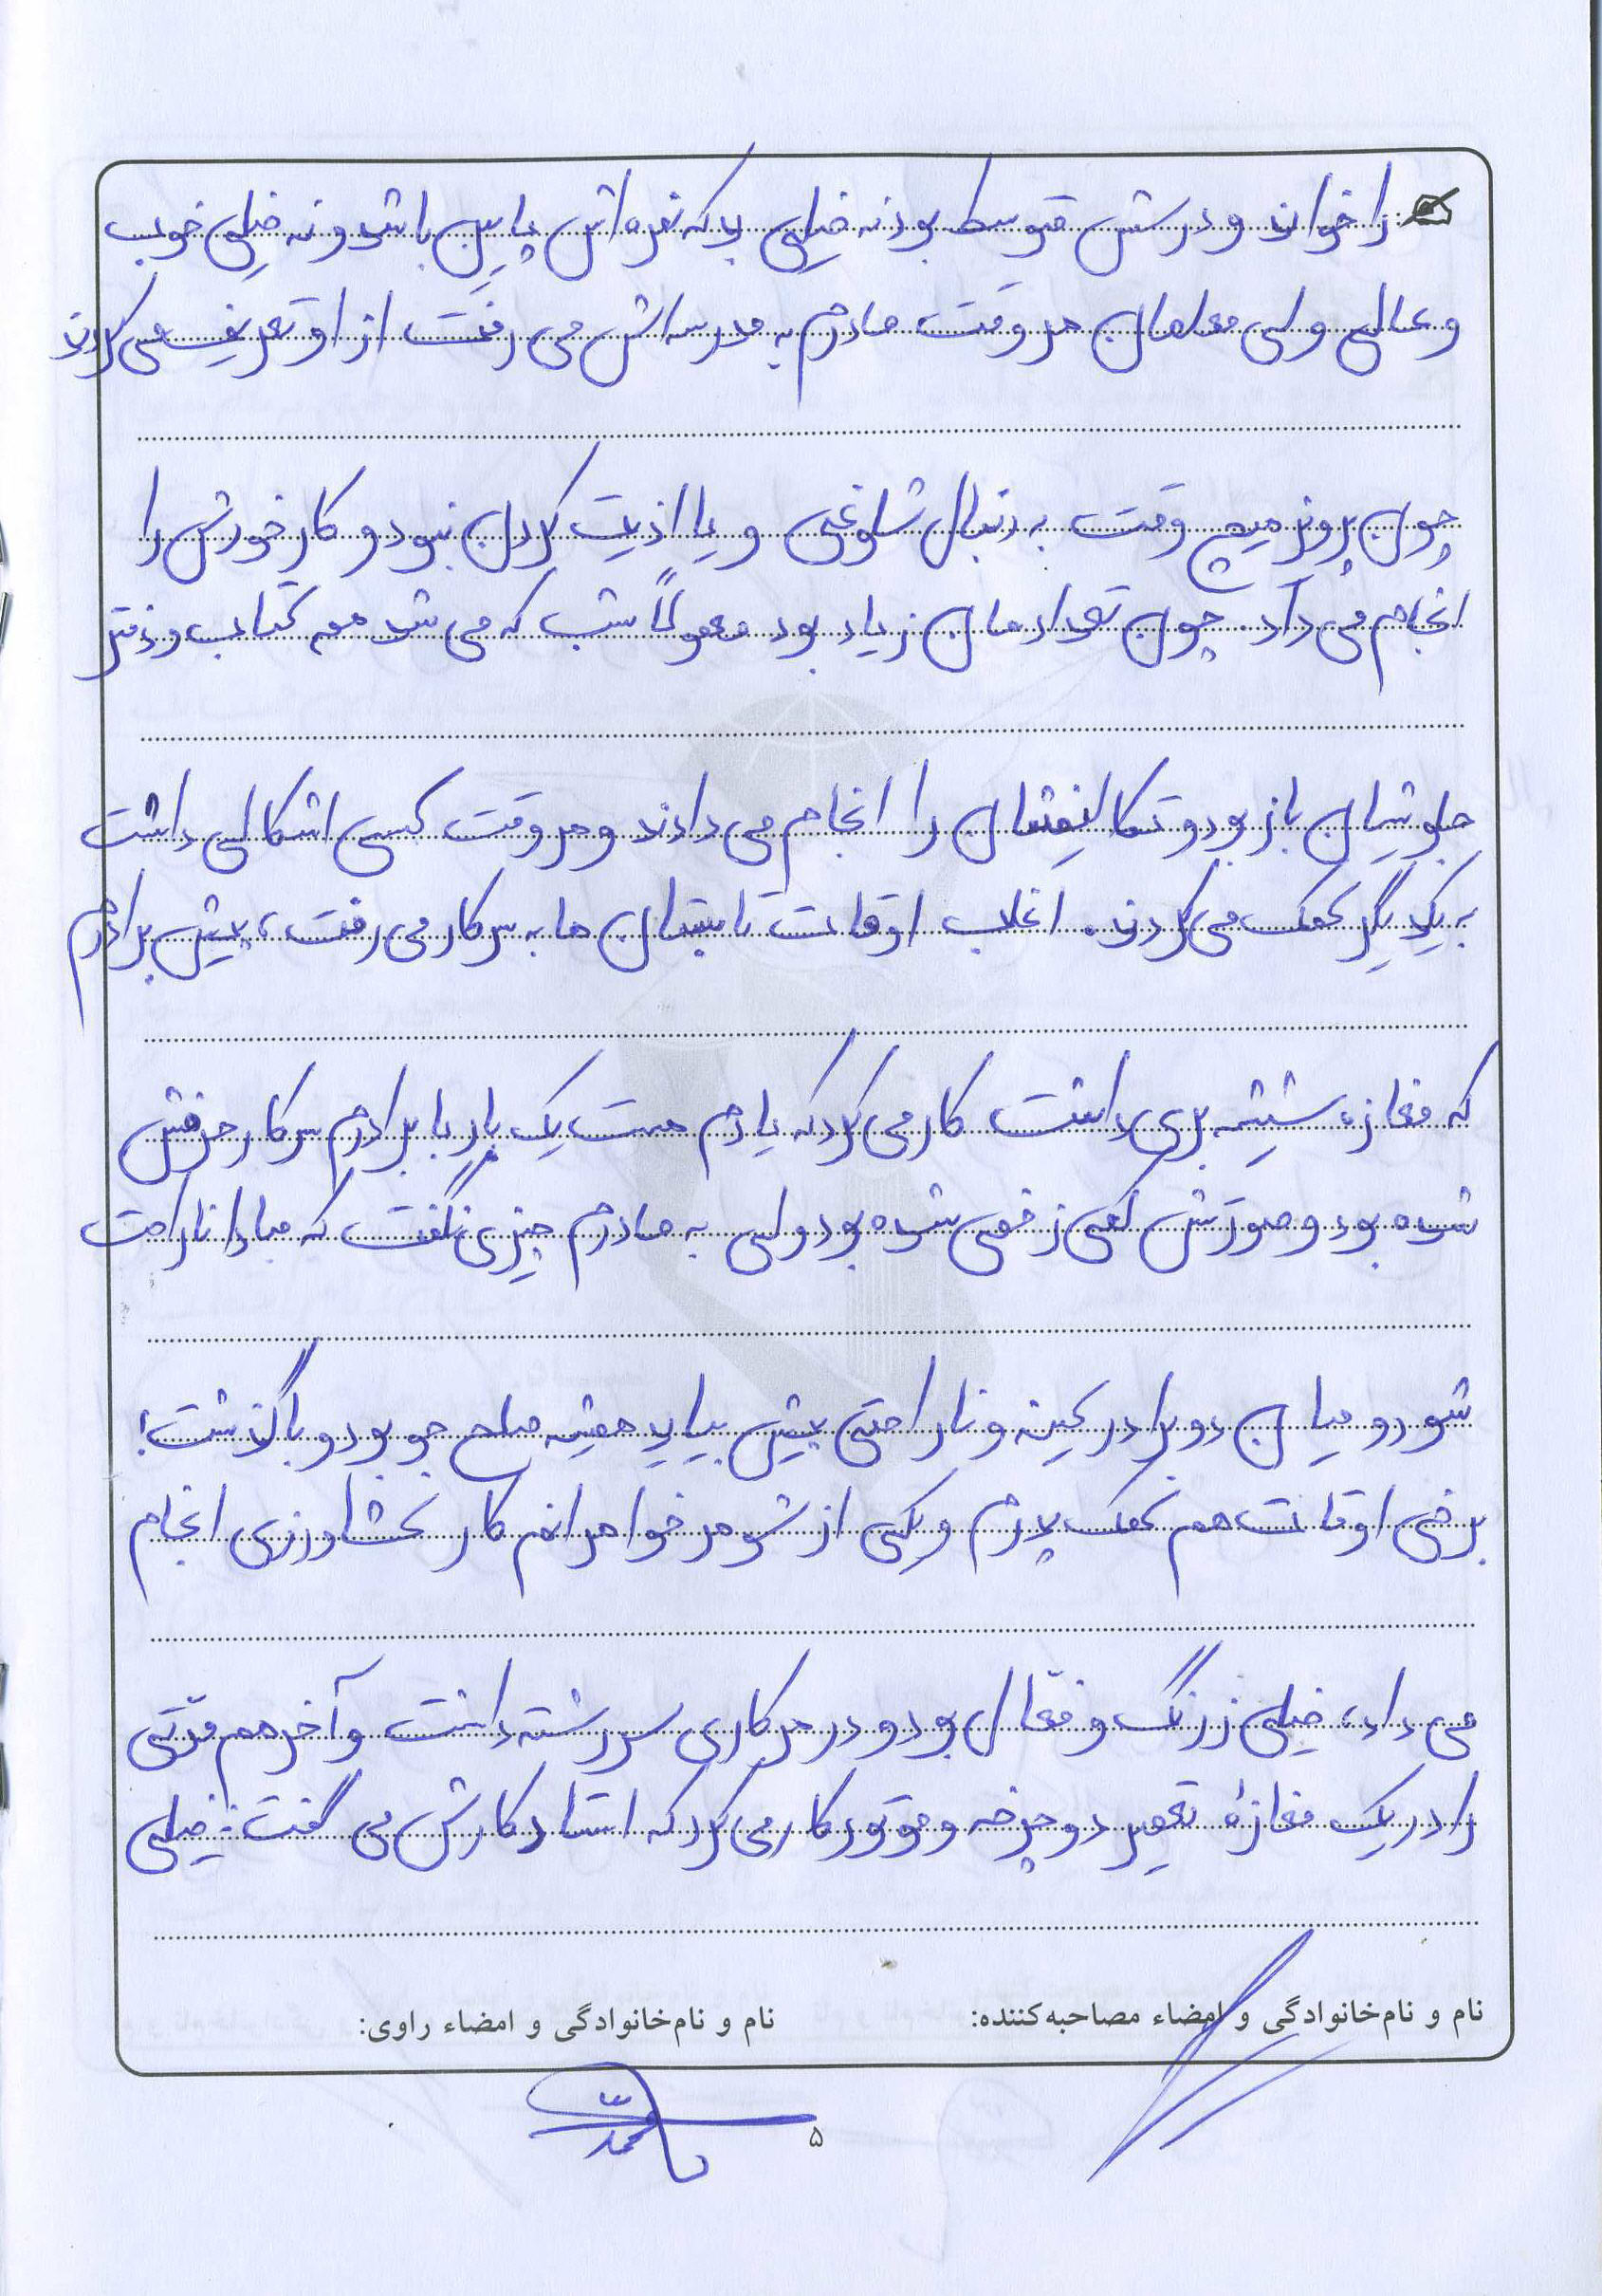 را خواند و درسش متوسط بود نه خیلی بد که نمره اش پایین باشد و نه خیلی خوب
و عالی ولی معلمان هر وقت مادرم به مدرسه اش می رفت از او تعریف می کردند
چون پرویز هیچ وقت به دنبال شلوغی و یا اذیت کردن نبود و کار خودش را
انجام می داد. چون تعدادمان زیاد بود معمولاً شب که می شد همه کتاب و دفتر
جلوشان باز بود و تکالیفشان را انجام می دادند و هر وقت کسی اشکالی داشت
به یکدیگر کمک می کردند. اغلب اوقات تابستان ها به سر کار می رفت، پیش برادرم
که مغازه شیشه بری داشت کار می کرد که یادم هست یک بار با برادرم سر کار حرفش
شده بود و صورتش کمی زخمی شده بود ولی به مادرم چیزی نگفت که مبادا ناراحت
شود و میان دو برادر کینه و ناراحتی پیش بیاید همیشه صلح جو بود و با گذشت!
برخی اوقات هم کمک پدرم و یکی از شوهر خواهرانم کار کشاورزی انجام
می داد، خیلی زرنگ و فعال بود و در هر کاری سررشته داشت و آخر هم مدتی
را در یک مغازهٔ تعمیر دوچرخه و موتور کار می کرد که استاد کارش می گفت: خیلی
نام و نام‌خانوادگی و امضاء مصاحبه‌کننده:
نام و نام‌خانوادگی و امضاء راوی:
۵